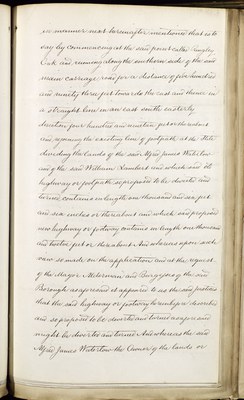 or manner next hereinafter mentioned that is to
say by commencing at the said point called Tingley
Oak and running along the northern side of the said
main carriage road for a distance of five hundred
and ninety three feet towards the east and thence in
a straight line in an east south easterly
direction four hundred and nineteen feet or thereabout
and rejoining the existing line of footpath at the Stile
dividing the lands of the said Alfred James Waterlow
and of the said William Lambert and which said
highway or footpath so proposed to be diverted and
turned contains in length one thousand and six feet
and six inches or thereabout and which said proposed
new highway or footway contains in length one thousand
and twelve feet or thereabout And whereas upon such
view so made on the application and at the request
of the Mayor Aldermen and Burgesses of the said
Borough as aforesaid it appeared to us the said justices
that the said highway or footway hereinbefore described
and so proposed to be diverted and turned as aforesaid
might be diverted and turned And whereas the said
Alfred James Waterlow the Owner of the lands or